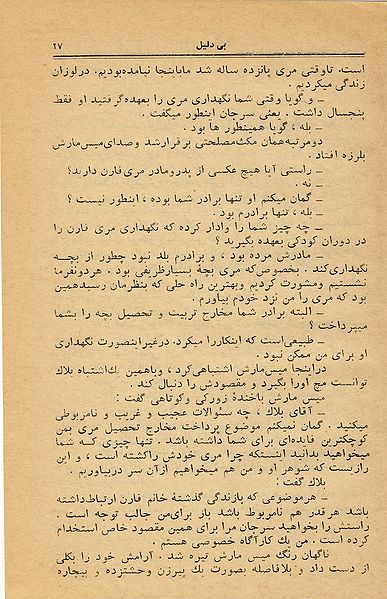 بی دلیل ۲۷
است. تاوقتی مری پانزده ساله شد مابااینجا نیامده‌بودیم. درلوزان
زندگی میکردیم.
ـ و گویا وقتی شما نگهداری مری را بعهده‌گرفتید او فقط
پنجسال داشت. یعنی سرجان اینطور میگفت.
ـ بله، گویا همینطور ها بود.
دومرتبه‌همان مکث‌مصلحتی برقرارشد وصدای‌میس‌مارش
بلرزه افتاد.
ـ راستی آیا هیچ عکسی از پدرومادر مری‌فارن دارید؟
ـ نه.
ـ گمان میکنم او تنها برادر شما بوده، اینطور نیست؟
ـ بله، تنها برادرم بود.
ـ چه چیز شما را وادار کرده که نگهداری مری فارن را
در دوران کودکی بعهده بگیرید؟
ـ مادرش مرده بود، و برادرم بلد نبود چطور از بچه
نگهداری‌کند. بخصوص‌که مری بچهٔ بسیارظریفی بود. هردونفرما
نشستیم ومشورت کردیم وبهترین راه حلی که بنظرمان رسیدهمین
بود که مری را من نزد خودم بیاورم.
ـ البته برادر شما مخارج تربیت و تحصیل بچه را بشما
میپرداخت؟
ـ طبیعی‌است که اینکاررا میکرد. درغیراینصورت نگهداری
او برای من ممکن نبود.
دراینجا میس‌مارش اشتباهی‌کرد، وباهمین یك‌اشتباه بلاك
توانست مچ اورا بگیرد و مقصودش را دنبال کند.
میس مارش باخندهٔ زورکی وکوتاهی گفت:
ـ آقای بلاك، چه سئوالات عجیب و غریب و نامربوطی
میکنید. گمان نمیکنم موضوع پرداخت مخارج تحصیل مری بمن
کوچکترین فایده‌ای برای شما داشته باشد. تنها چیزی که شما
میخواهید بدانید اینستکه چرا مری خودش راکشته است، و این
رازیست که شوهر او و من هم میخواهیم ازآن سر دربیاوریم.
بلاك گفت:
ـ هرموضوعی که بازندگی گذشتهٔ خانم فارن ارتباط‌داشته
باشد هرقدر هم نامربوط باشد باز برای‌من جالب توجه است.
راستش را بخواهید سرجان مرا برای همین مقصود خاص استخدام
کرده است. من یك کارآگاه خصوصی هستم.
ناگهان رنگ میس مارش تیره شد. آرامش خود را بکلی
از دست داد و بلافاصله بصورت یك پیرزن وحشتزده و بیچاره